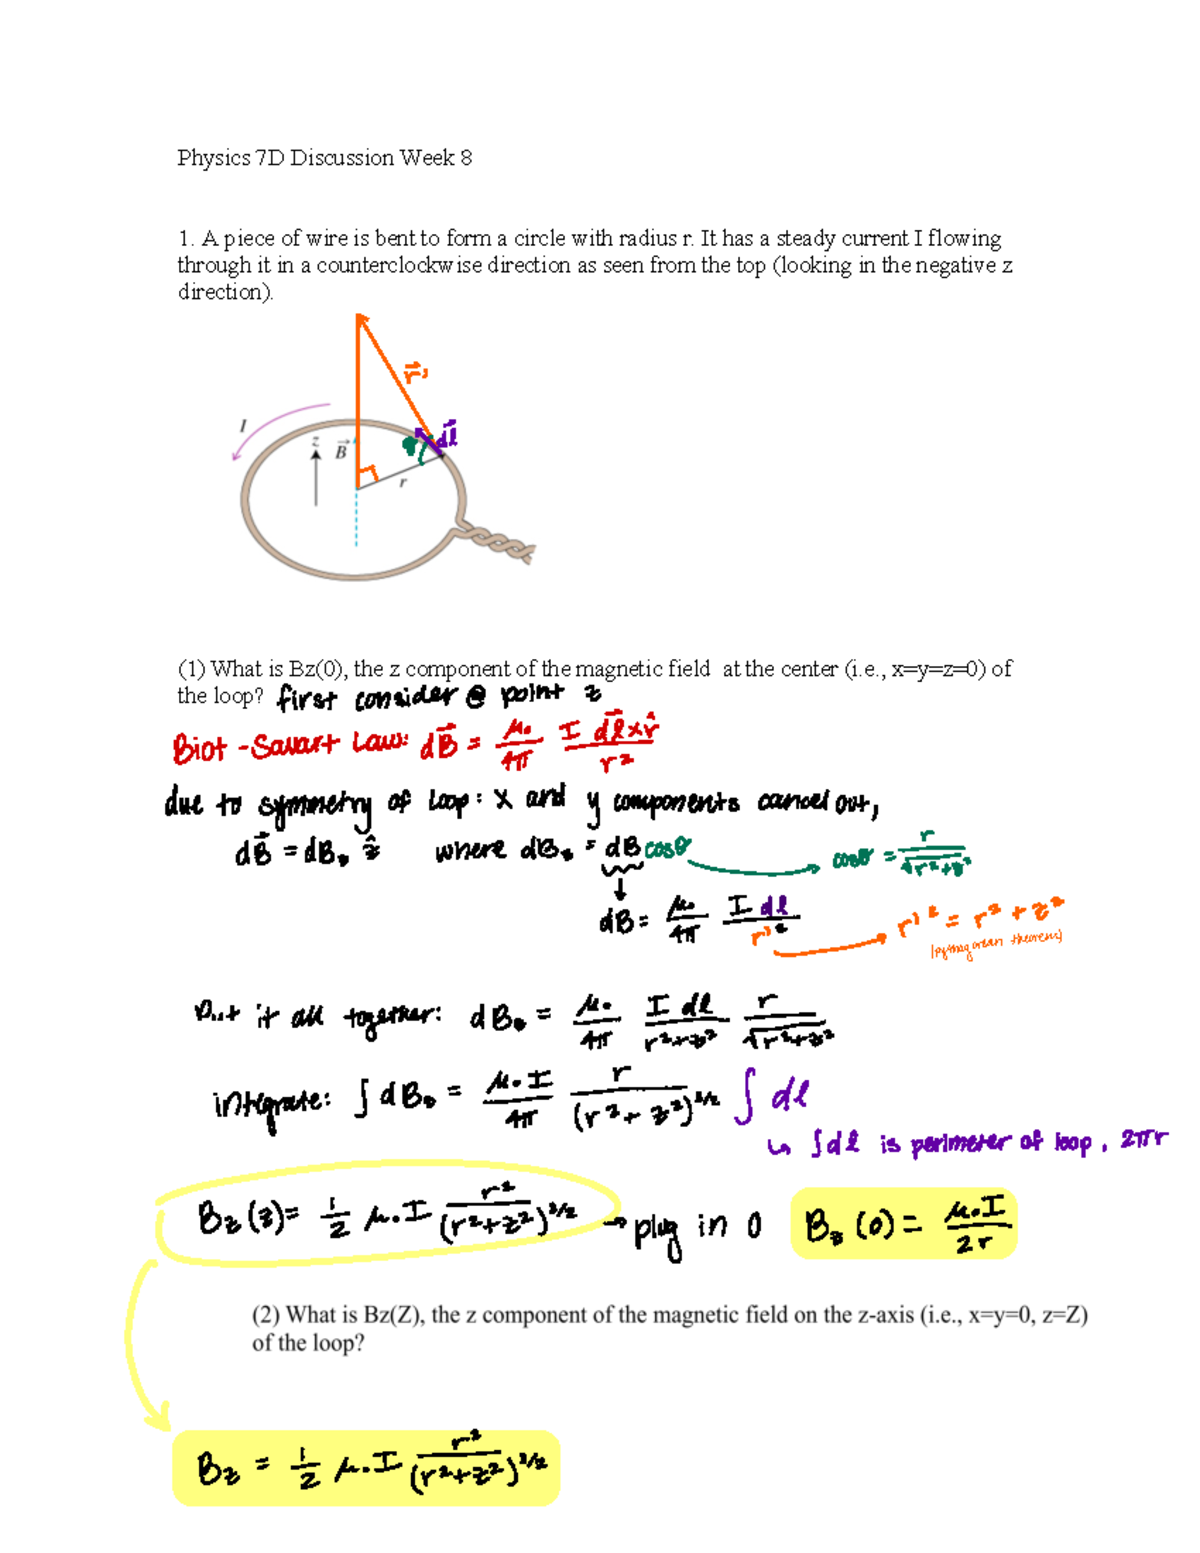 Physics 7D Discussion Week 8
1. A piece of wire is bent to form a circle with radius r. It has a steady current I flowing
through it in a counterclockwise direction as seen from the top (looking in the negative z
direction).
r⃗'
I
z
B⃗
θ
dl⃗
r
(1) What is Bz(0), the z component of the magnetic field at the center (i.e., x=y=z=0) of
the loop? first consider @ point z
Biot-Savart Law: dB⃗ = μ₀/4π I dl⃗ x r̂ / r²
due to symmetry of loop: x and y components cancel out,
dB⃗ = dB_z ẑ where dB_z = dB cosθ cosθ = r/√(r²+z²)
dB = μ₀/4π I dl/r'² r'² = r² + z²
(pythagorean theorem)
Put it all together: dB_z = μ₀/4π I dl/(r²+z²) r/√(r²+z²)
integrate: ∫ dB_z = μ₀I/4π r/(r²+z²)^3/2 ∫ dl
↳ ∫dl is perimeter of loop, 2πr
B_z(z) = 1/2 μ₀I r²/(r²+z²)^3/2 → plug in 0 B_z(0) = μ₀I/2r
(2) What is Bz(Z), the z component of the magnetic field on the z-axis (i.e., x=y=0, z=Z)
of the loop?
B_z = 1/2 μ₀I r²/(r²+z²)^3/2